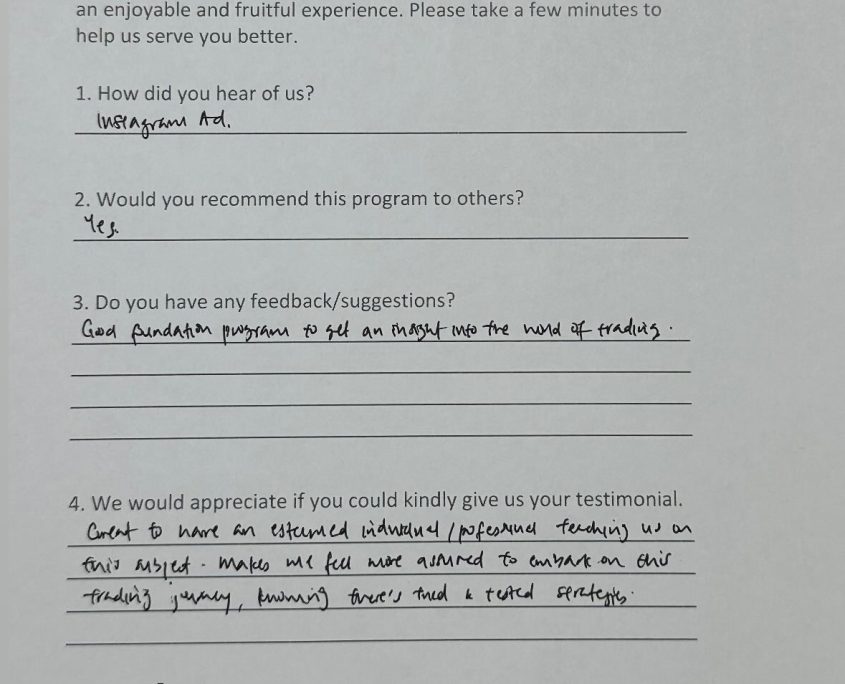 an enjoyable and fruitful experience. Please take a few minutes to
help us serve you better.
1. How did you hear of us?
Instagram Ad.
2. Would you recommend this program to others?
Yes.
3. Do you have any feedback/suggestions?
Good foundation program to get an insight into the world of trading.
4. We would appreciate if you could kindly give us your testimonial.
Great to have an esteemed individual / professional teaching us on
this subject. Makes me feel more assured to embark on this
trading journey, knowing there's tried & tested strategies.